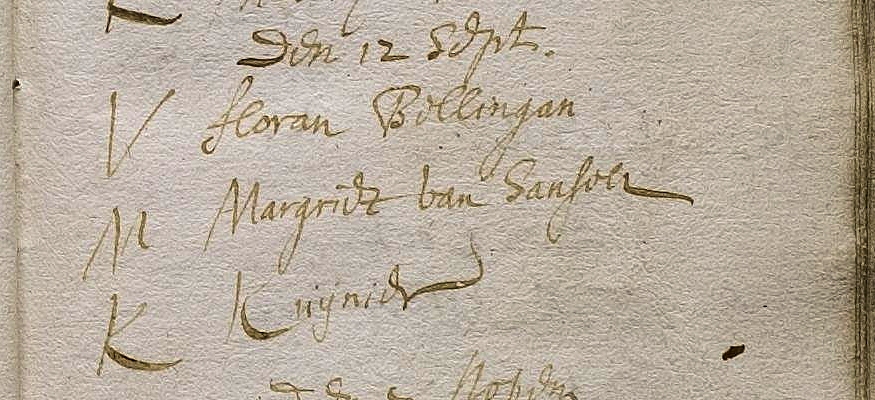 Den 12 Sept.
V floran Bellingan
M Margridt van Sansoer
K Knijnier